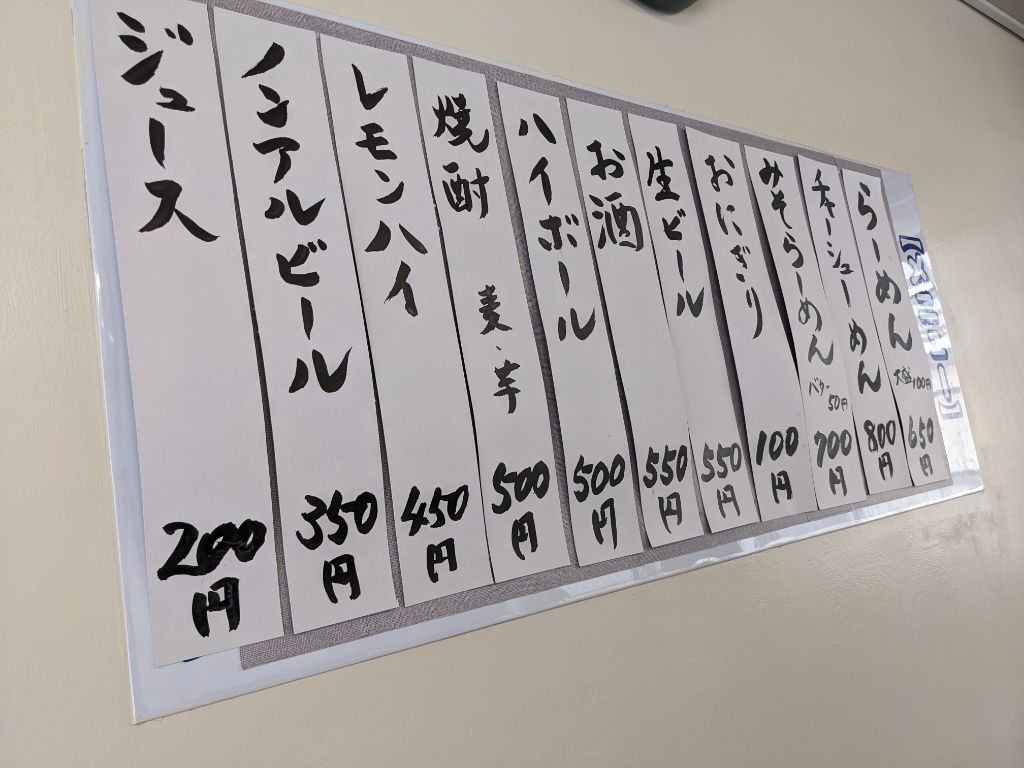 らーめん 大盛100円 650円
チャーシューめん 800円
みそらーめん バター50円 700円
おにぎり 100円
生ビール 550円
お酒 550円
ハイボール 500円
焼酎 麦・芋 500円
レモンハイ 450円
ノンアルビール 350円
ジュース 200円